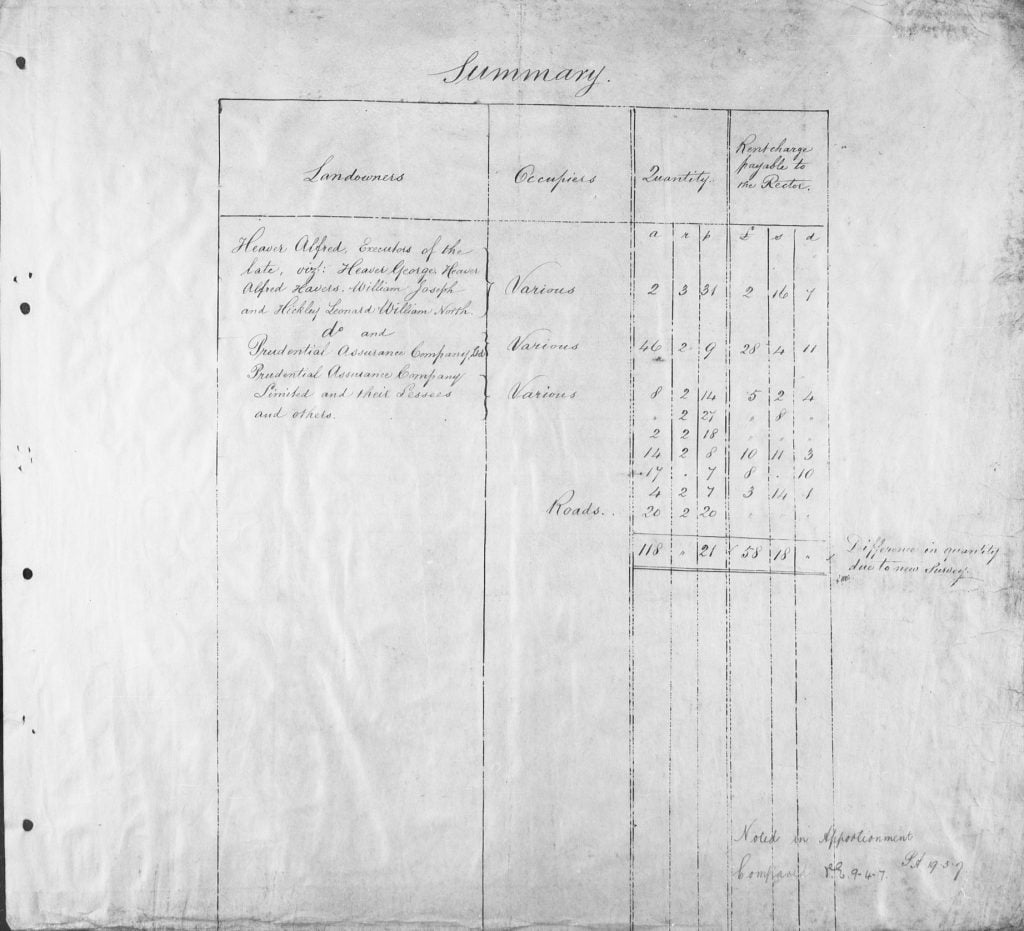 Summary.
Landowners Occupiers Quantity. Rentcharge payable to the Rector.
a r p £ s d
Heaver Alfred, Executors of the
late, vizt: Heaver George, Heaver
Alfred Havers, William Joseph Various 2 3 31 2 16 7
and Hickley Leonard William North.
do and
Prudential Assurance Company, Ltd. Various 46 2 9 28 4 11
Prudential Assurance Company
Limited and their Lessees Various 8 2 14 5 2 4
and others. " 2 27 " 8 "
2 2 18 " " "
14 2 8 10 11 3
17 " 7 8 " 10
4 2 7 3 14 1
Roads.. 20 2 20 " " "
118 " 21 58 18 " Difference in quantity
due to new Survey
Noted in Apportionment
Compared 9-4-7. 19-3-7